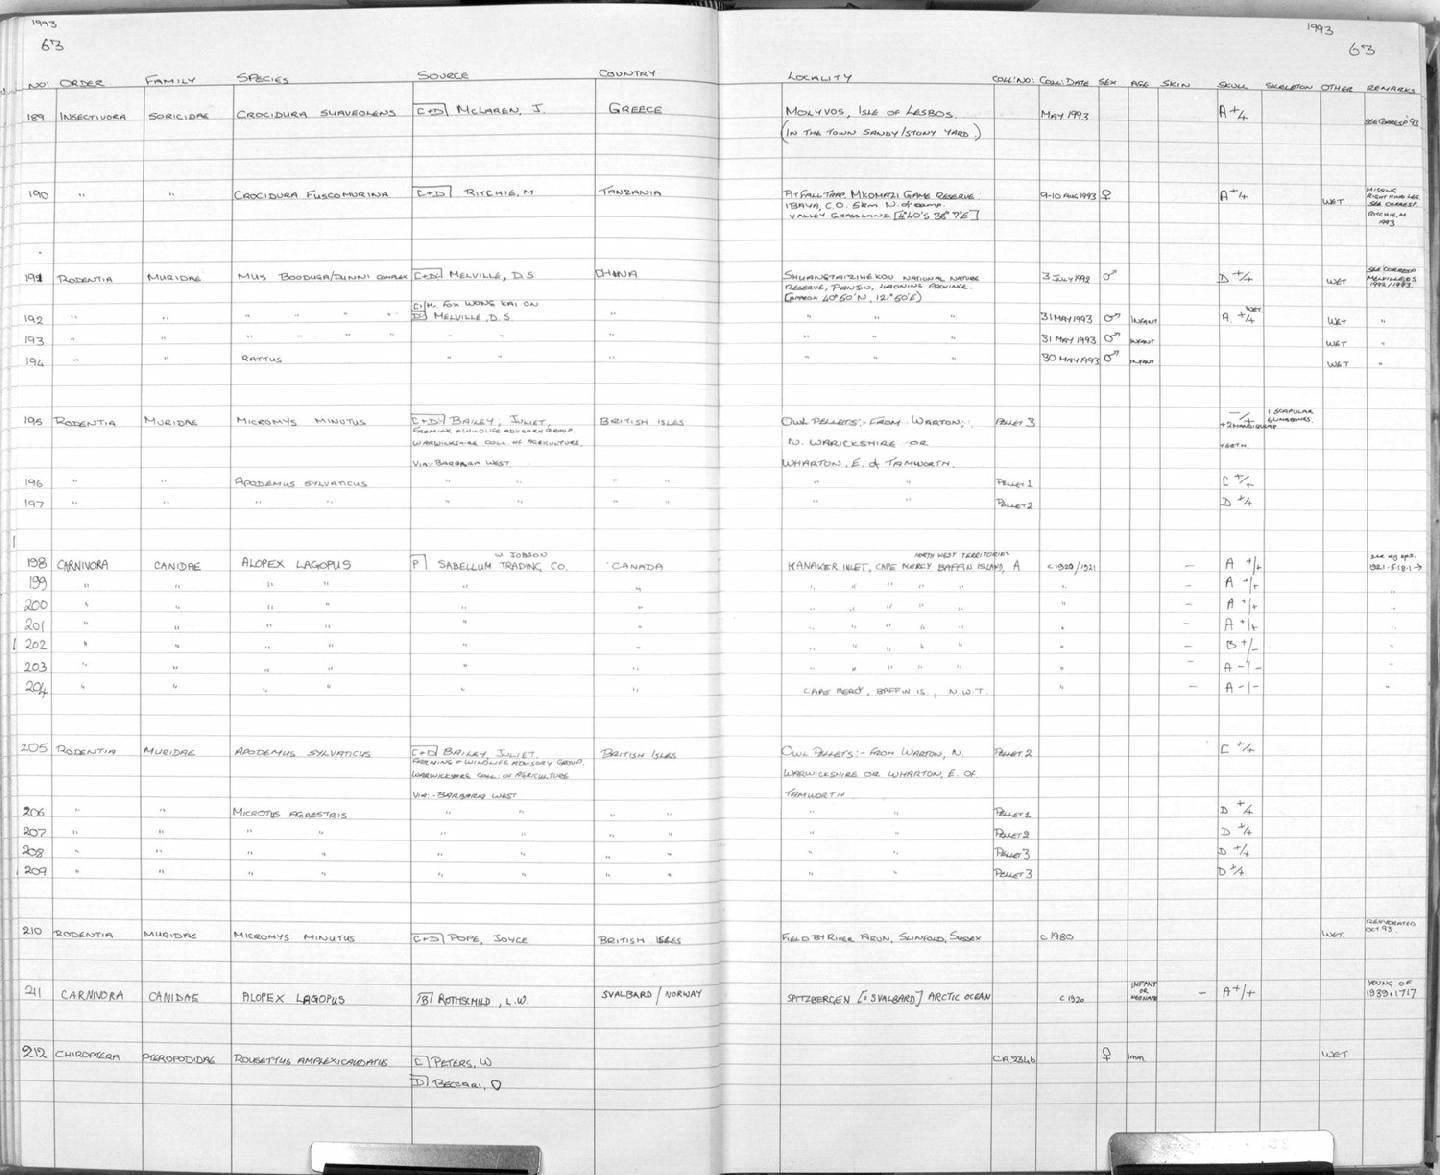 1993
63
1993
63
NO: ORDER FAMILY SPECIES SOURCE COUNTRY LOCALITY COLL: NO: COLL: DATE SEX AGE SKIN SKULL SKELETON OTHER REMARKS
189 INSECTIVORA SORICIDAE CROCIDURA SUAVEOLENS C+D McLAREN, J. GREECE MOLYVOS, ISLE OF LESBOS. MAY 1993 A +/4 SEE CORRESP '93
(IN THE TOWN SANDY/STONY YARD.)
190 " " CROCIDURA FUSCOMURINA C+D RITCHIE, M TANZANIA PITFALL TRAP, MKOMAZI GAME RESERVE. 9-10 AUG 1993 ♀ A +/4 WET MISSING RIGHT HIND LEG. SEE CORRESP. RITCHIE, M 1993
IBAYA, C.O. 5km N. of camp.
VALLEY GRASSLAND
191 RODENTIA MURIDAE MUS BOODUGA/DUNNI COMPLEX C+D MELVILLE, D.S CHINA SHUANGTAIZIHEKOU NATIONAL NATURE 3 JULY 1992 ♂ D +/4 WET SEE CORRESP MELVILLE DS 1992/1993.
RESERVE, PANJIN, LIAONING PROVINCE.
(APPROX 40°50'N, 12°50'E)
C/ H. FOX WONG KAI ON
192 " " " " " " D MELVILLE, D.S. " " " " 31 MAY 1993 ♂ INFANT A +/4 WET WET "
193 " " " " " " " " " " " " 31 MAY 1993 ♂ INFANT WET "
194 " " RATTUS " " " " " " 30 MAY 1993 ♂ INFANT WET "
195 RODENTIA MURIDAE MICROMYS MINUTUS C+D BAILEY, JULIET, BRITISH ISLES OWL PELLETS:- FROM WARTON, PELLET 3 -/+ +2 MANDIBULAR TEETH 1 SCAPULAR LIMBBONES.
FARMING & WILDLIFE ADVISORY GROUP
WARWICKSHIRE COLL. OF AGRICULTURE. N. WARICKSHIRE OR
VIA:- BARBARA WEST. WHARTON. E. of TAMWORTH.
196 " " APODEMUS SYLVATICUS " " " " " " PELLET 1 C +/+
197 " " " " " " " " " " PELLET 2 D +/4
W JOBSON
NORTH WEST TERRITORIES
198 CARNIVORA CANIDAE ALOPEX LAGOPUS P SABELLUM TRADING CO. CANADA KANAKER INLET, CAPE MERCY BAFFIN ISLAND, A c 1920/1921 - A +/+ see reg sps. 1921.5.18.1 →
199 " " " " " " " " " " " - A +/+ "
200 " " " " " " " " " " " " - A +/+ "
201 " " " " " " " " " " " " - A +/+ "
202 " " " " " " " " " " " " - B +/- "
203 " " " " " " " " " " " " - A -/- "
204 " " " " " " CAPE MERCY, BAFFIN IS., N.W.T. " - A -/- "
205 RODENTIA MURIDAE APODEMUS SYLVATICUS C+D BAILEY, JULIET. BRITISH ISLES OWL PELLETS:- FROM WARTON, N. PELLET 2 C +/4
FARMING & WILDLIFE ADVISORY GROUP.
WARWICKSHIRE COLL: OF AGRICULTURE WARWICKSHIRE OR WHARTON, E. OF
VIA:- BARBARA WEST TAMWORTH
206 " " MICROTUS AGRESTIS " " " " " " PELLET 1 D +/4
207 " " " " " " " " " " PELLET 2 D +/4
208 " " " " " " " " " " PELLET 3 D +/4
209 " " " " " " " " " " PELLET 3 D +/4
210 RODENTIA MURIDAE MICROMYS MINUTUS C+D POPE, JOYCE BRITISH ISLES FIELD BY RIVER ARUN, SLINFOLD, SUSSEX c 1980 WET. REHYDRATED OCT 93.
211 CARNIVORA CANIDAE ALOPEX LAGOPUS B ROTHSCHILD, L.W. SVALBARD / NORWAY SPITZBERGEN [= SVALBARD] ARCTIC OCEAN c 1920 INFANT OR NEONATE - A +/+ YOUNG OF 1939.1717
212 CHIROPTERA PTEROPODIDAE ROUSETTUS AMPLEXICAUDATUS C PETERS, W C.A.2346 ♀ imm WET
D BECCARI, O